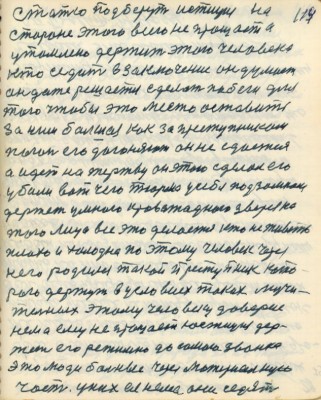 стороне этого всего не прощает а
утомлено держит этого человека
кто седит в заключение он думает
он даже решается сделат побеги для
того чтобы это место оставить
За ним как за преступником
погон его догоняют он не сдается
а идет на жертву он этого сделал его
убили вот чего творию у себя под замком
держет умного кровожадного
этого лицо все это делается кто не живеть
плохо и холодно по этому человек через
него родился такой преступник кото
рого держут в условиях таких мучи
тельных этому человеку доверие
нема ему не прощает
жет его режимно до самого звонка
это люди больные через материальную
часть. у них ея нема они седят